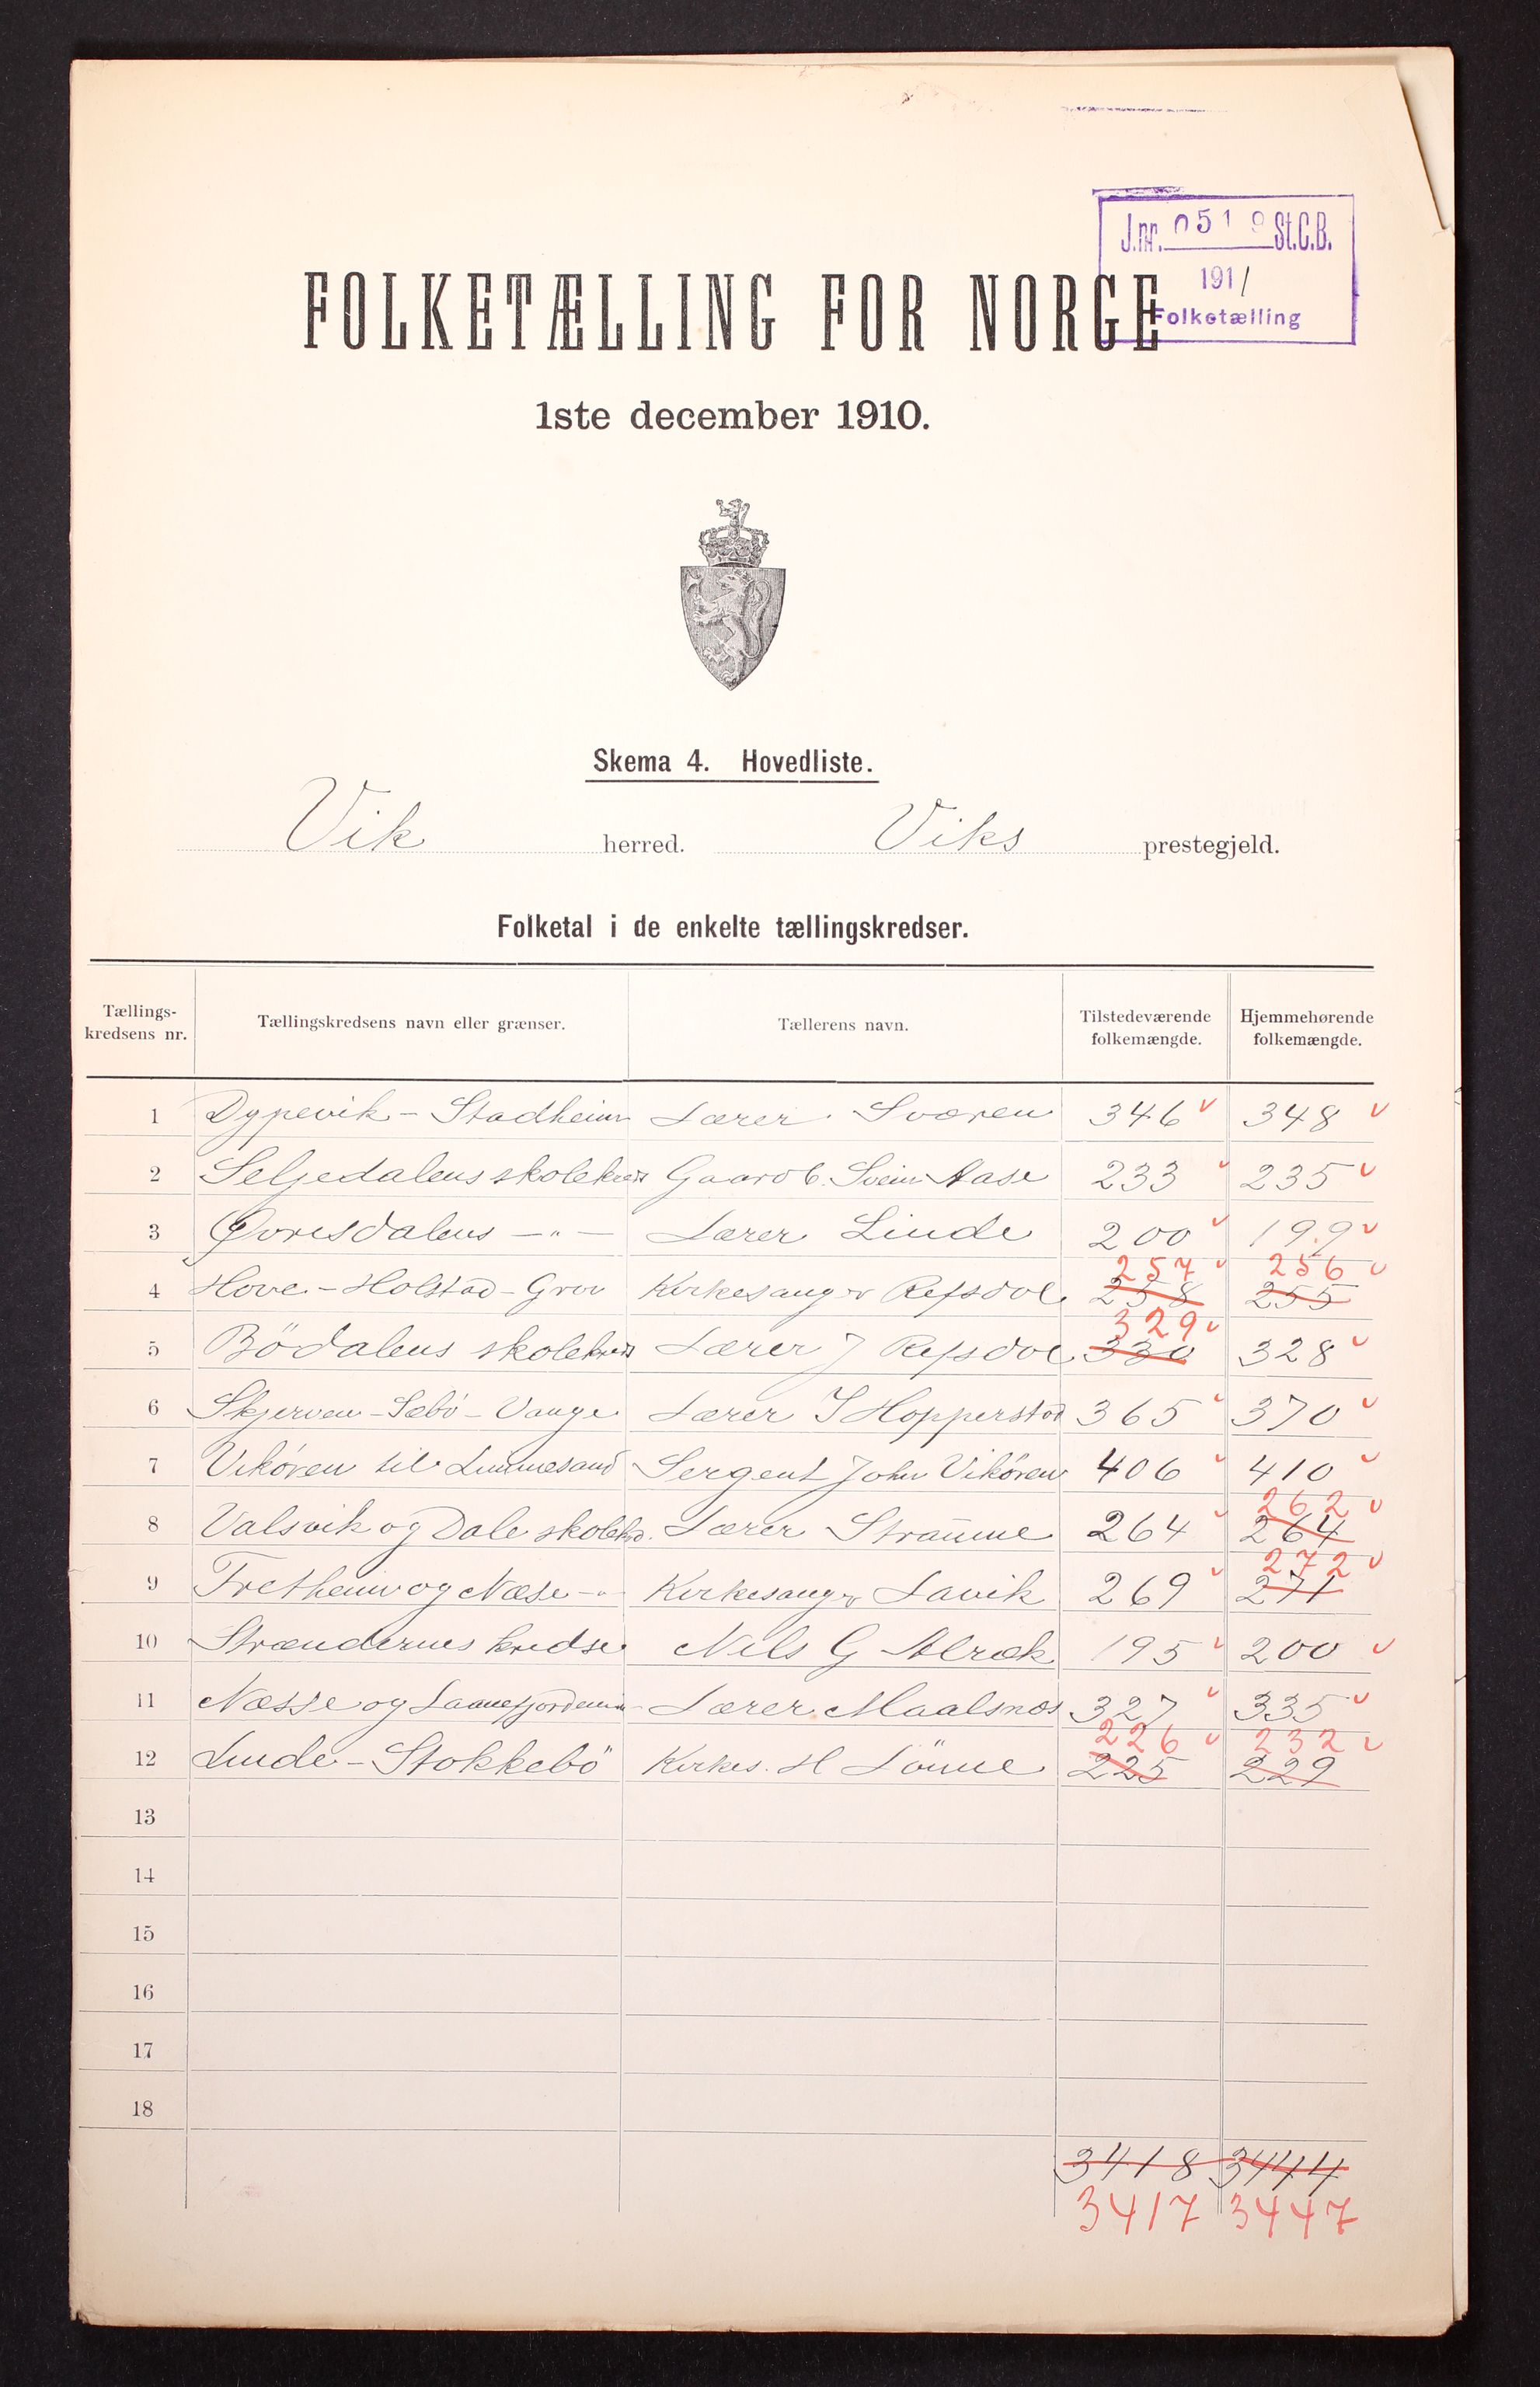 J.nr. 0519 St.C.B.
1911
Folketælling
FOLKETÆLLING FOR NORGE
1ste december 1910.
Skema 4. Hovedliste.
Vik herred. Viks prestegjeld.
Folketal i de enkelte tællingskredser.
Tællings-
kredsens nr.
Tællingskredsens navn eller grænser.
Tællerens navn.
Tilstedeværende
folkemængde.
Hjemmehørende
folkemængde.
1 Dypevik - Stadheim Lærer Sværen 346 348
2 Seljedalens skolekreds Gaardb. Svein Aase 233 235
3 Ovrisdalens -"- Lærer Linde 200 199
257 256
4 Hove - Holstad - Grov Kirkesanger Refsdal 258 255
329
5 Bödalens skolekreds Lærer J Refsdal 330 328
6 Skjerven - Sæbö - Vange Lærer I Hopperstad 365 370
7 Vikören til Limmesand Sergent John Vikören 406 410
262
8 Valsvik og Dale skolekrd. Lærer Stramme 264 264
272
9 Tretheim og Næse -"- Kirkesanger Lavik 269 271
10 Strændernes kredse Nils G Alræk 195 200
11 Næsse og Lærer Maalsnæs 327 335
226 232
12 Linde - Stokkebö Kirkes. H Lönne 225 229
13
14
15
16
17
18
3418 3444
3417 3447